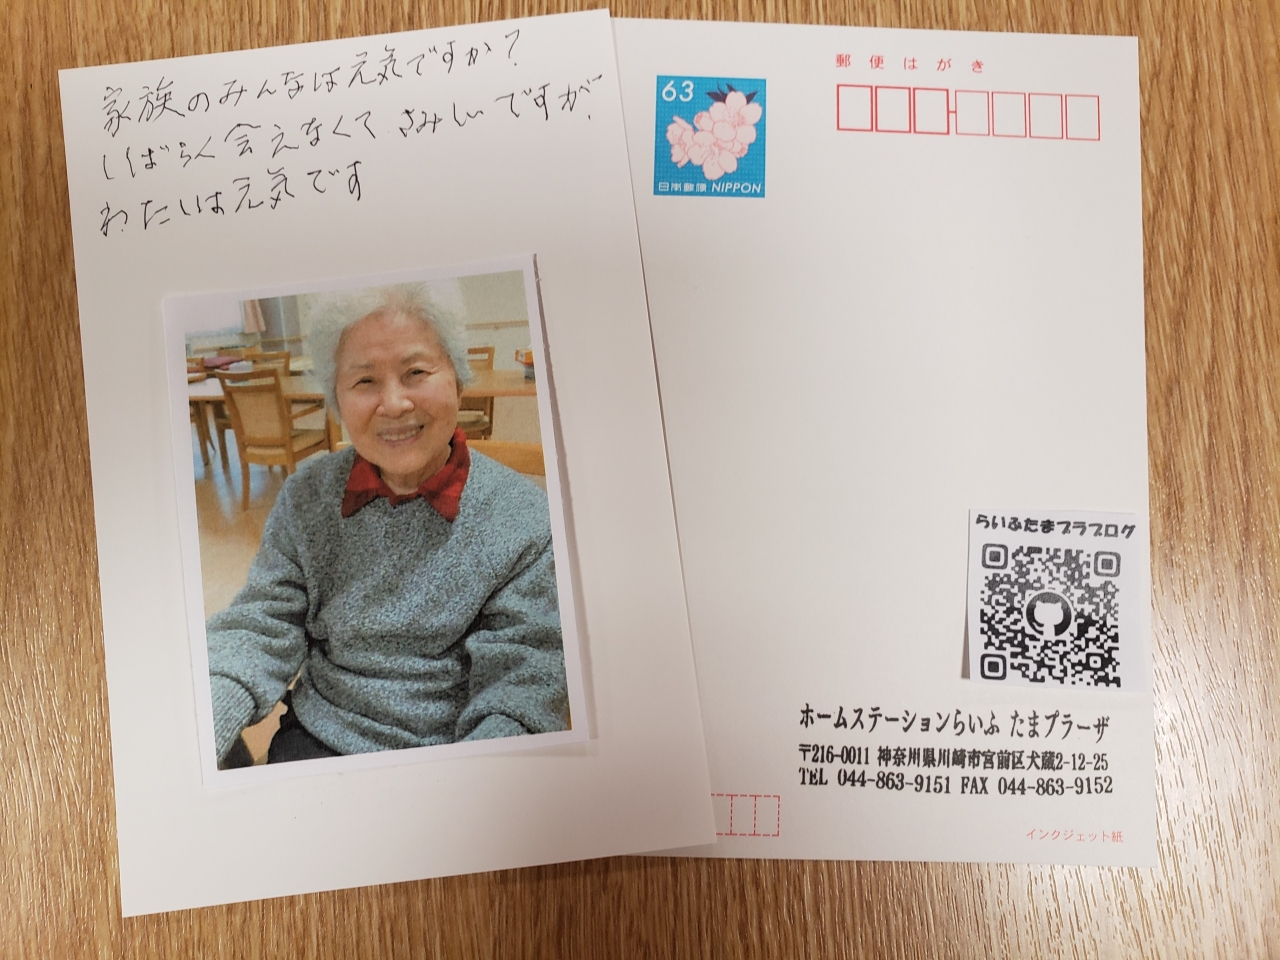 家族のみんなは元気ですか？
しばらく会えなくてさみしいですが、
わたしは元気です
63
日本郵便 NIPPON
郵便はがき
らいふたまプラブログ
ホームステーションらいふ たまプラーザ
〒216-0011 神奈川県川崎市宮前区犬蔵2-12-25
TEL 044-863-9151 FAX 044-863-9152
インクジェット紙